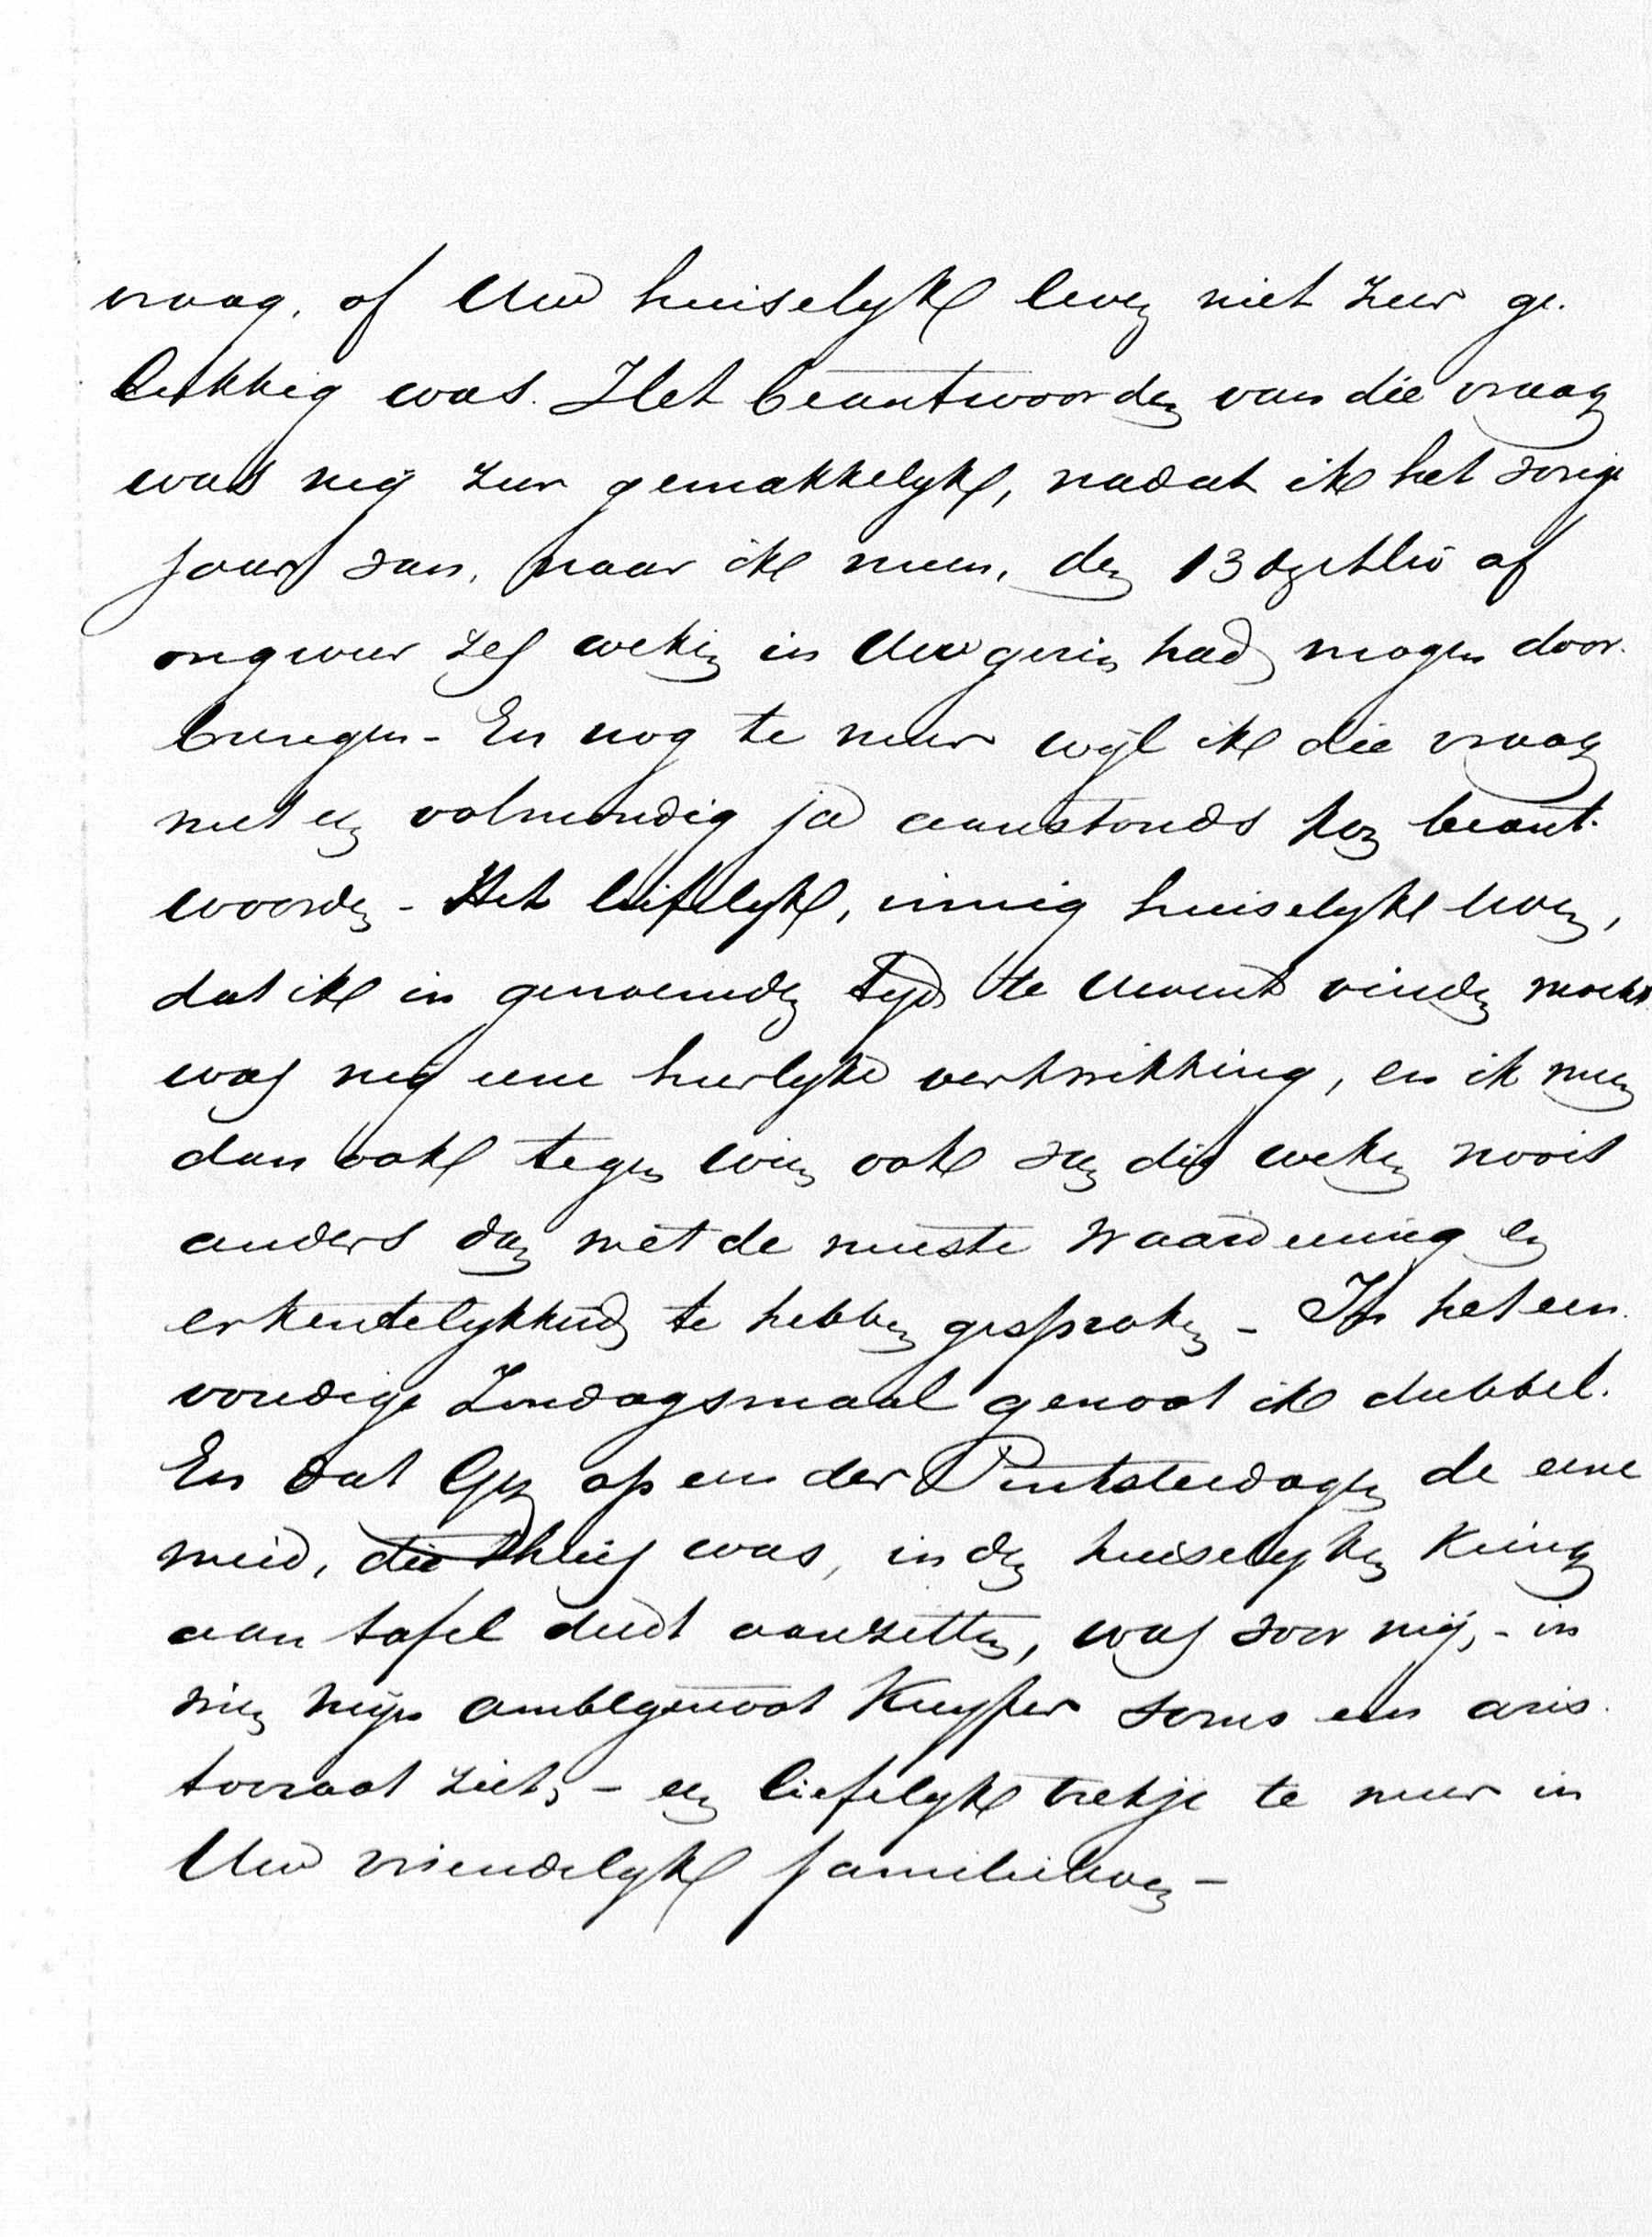 vraag, of Uw huiselyk leven niet zeer ge-
lukkig was. Het beantwoorden van die vraag
was mij zeer gemakkelyk, nadat ik het vorige
jaar van, naar ik meen, den 13 af
ongeveer zes weken in Uw gezin had mogen door-
brengen - En nog te meer wijl ik die vraag
met een volmondig ja aanstonds kon beant-
woorden - Het liefelyk, innig huiselyk leven,
dat ik in genoemden tyd te Uwent vinden mocht
was mij eene heerlyke verkwikking, en ik meen
dan ook tegen wien ook van die weken nooit
anders dan met de meeste waardeering en
erkentelykheid te hebben gesproken - In het een-
voudige Zondagsmaal genoot ik dubbel.
En dat Gy op een der Pinksterdagen de eene
meid, die thuis was, in den huiselyken kring
aan tafel deedt aanzitten, was voor mij, - in
wien mijn ambtgenoot Kuyper soms een aris-
tocraat ziet, - een liefelyk trekje te meer in
Uw vriendelyk familieleven -